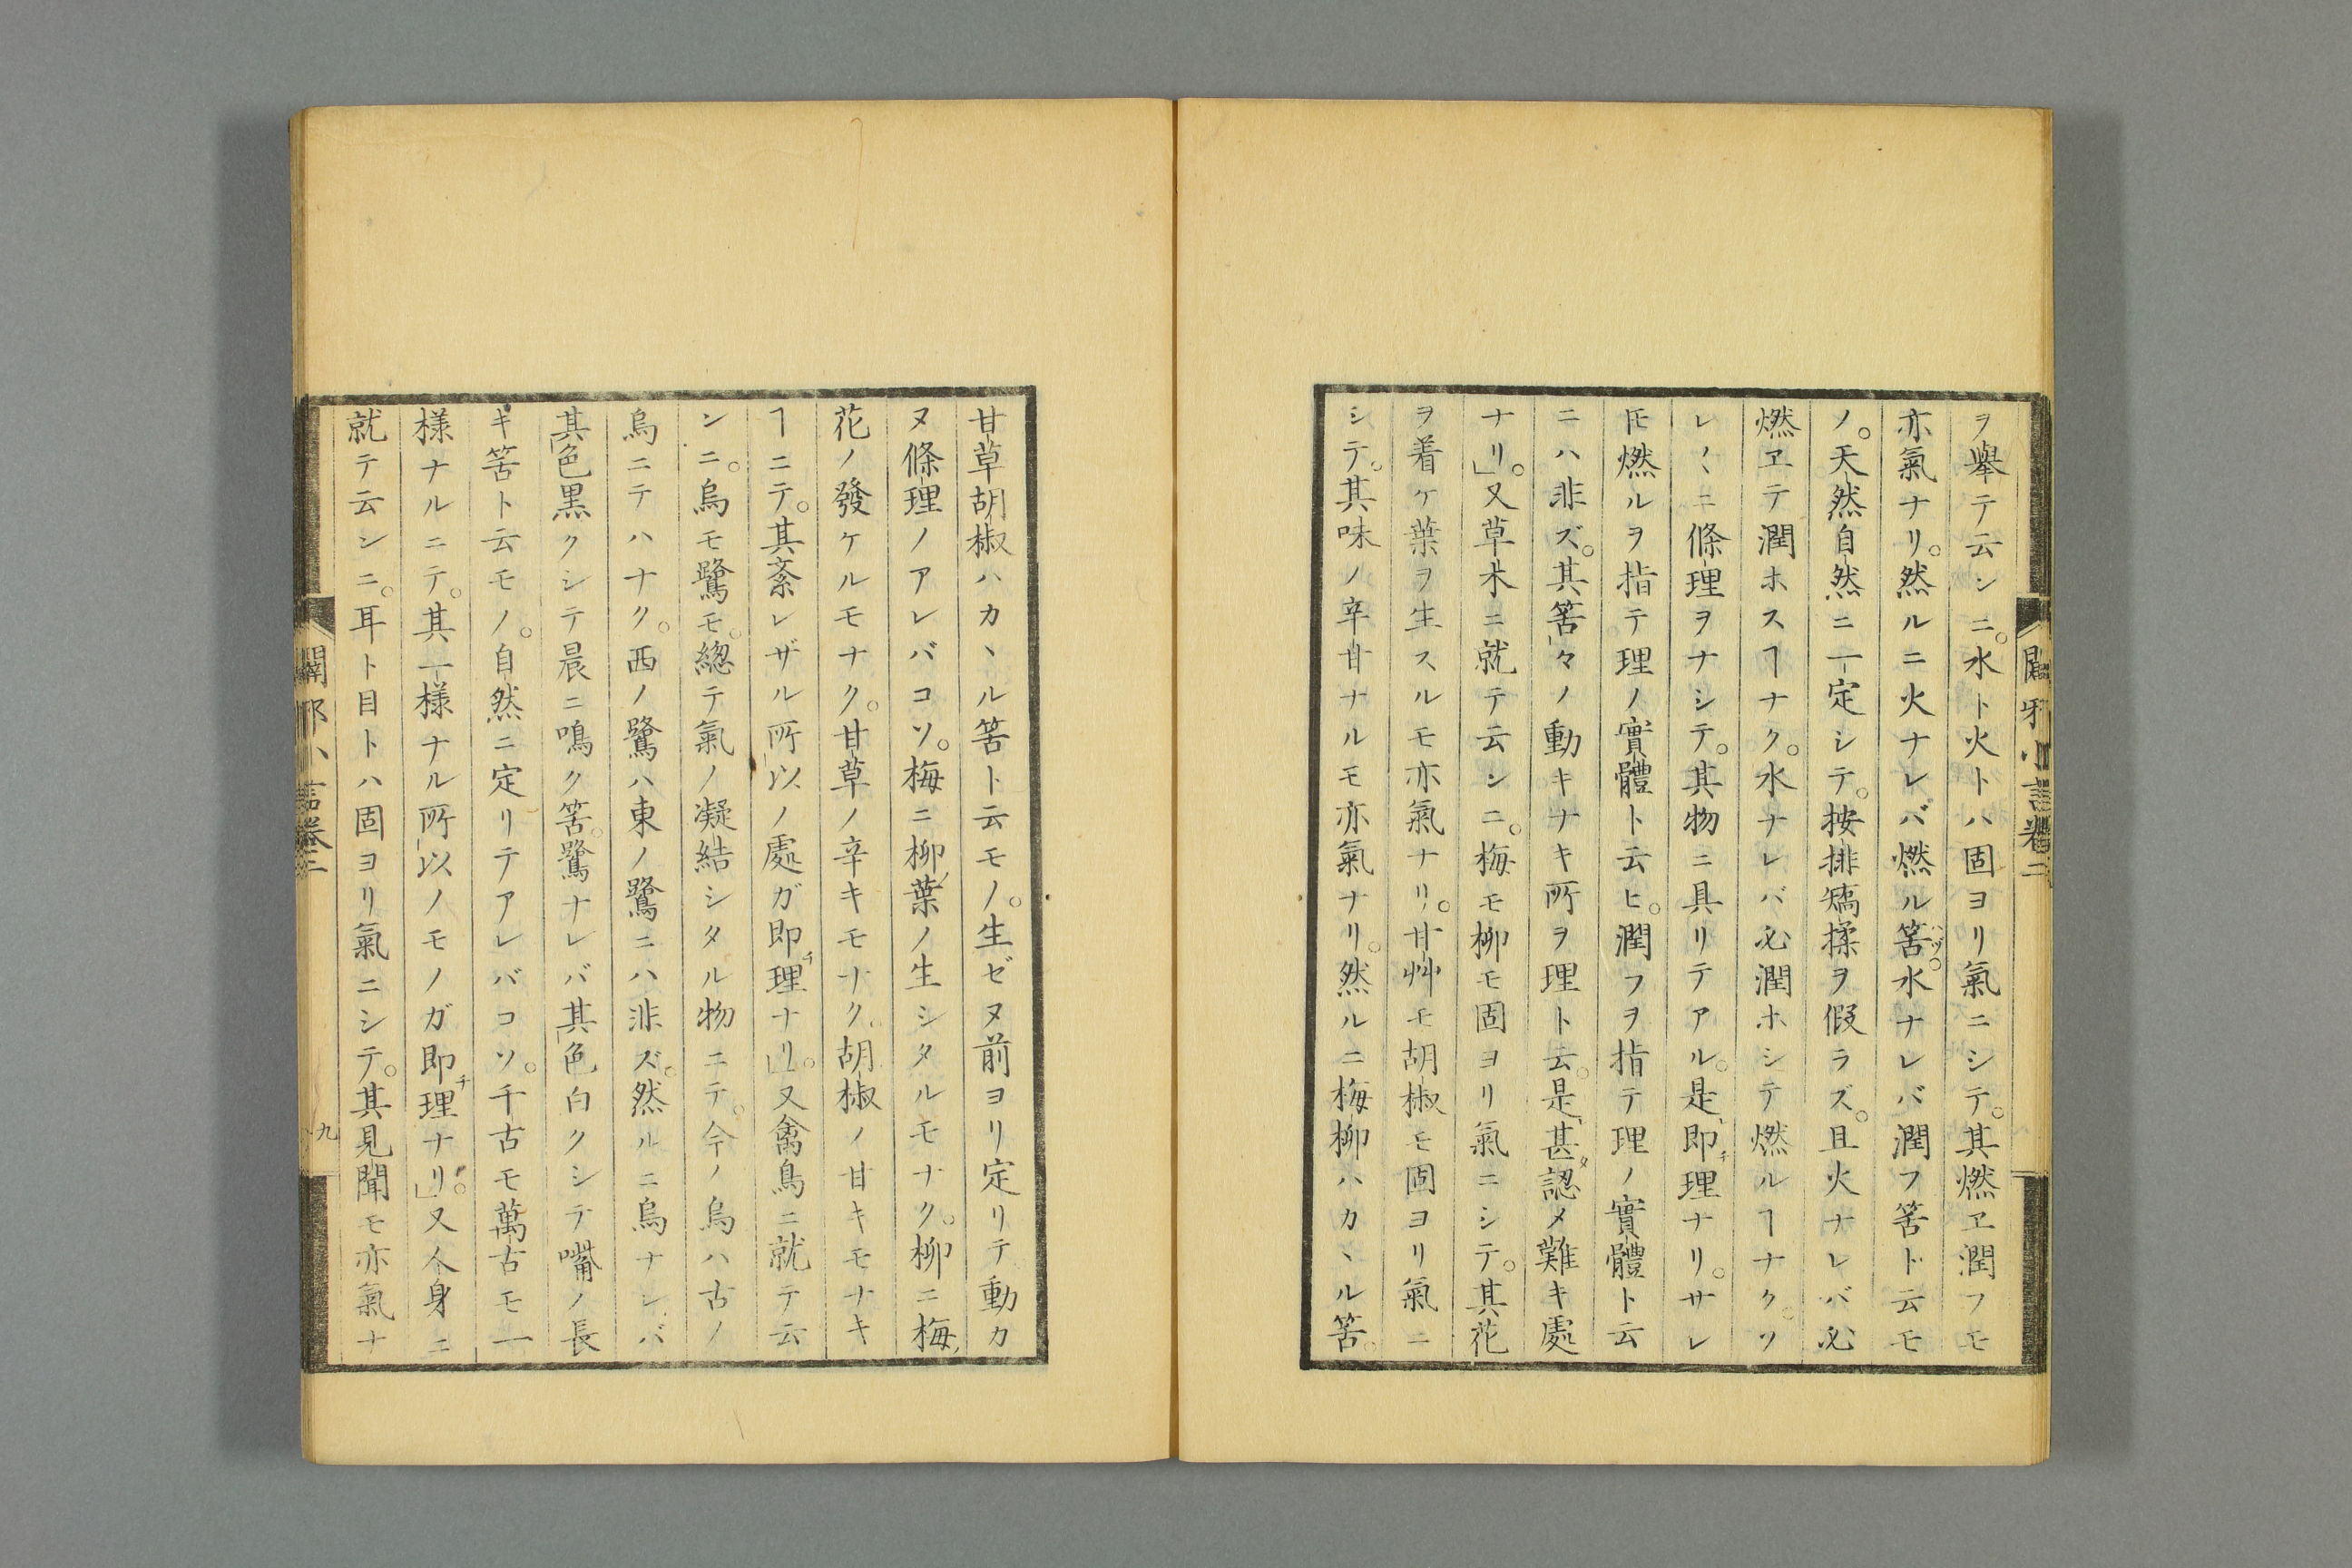 ヲ擧テ云シニ。水ト火トハ固ヨリ氣ニシテ。其燃ヱ潤フモ
亦氣ナリ。然ルニ火ナレバ燃ル筈ハヅ。水ナレバ潤フ筈ト云モ
ノ。天然自然ニ一定シテ。按排矯揉ヲ假ラズ。且火ナレバ必
燃ヱテ潤ホスヿナク。水ナレバ必潤ホシテ燃ルヿナク。ソ
レ〳〵ニ條理ヲナシテ。其物ニ具リテアル。是即チ理ナリ。サレ
𪜈燃ルヲ指テ理ノ實體ト云ヒ。潤フヲ指テ理ノ實體ト云
ニハ非ズ。其筈々ノ動キナキ所ヲ理ト云。是甚タ認メ難キ處
ナリ。」又草木ニ就テ云シニ。梅モ柳モ固ヨリ氣ニシテ。其花
ヲ着ケ葉ヲ生スルモ亦氣ナリ。甘艸モ胡椒モ固ヨリ氣ニ
シテ。其味ノ辛甘ナルモ亦氣ナリ。然ルニ梅柳ハカヽル筈。
甘草胡椒ハカヽル筈ト云モノ。生ゼヌ前ヨリ定リテ動カ
ヌ條理ノアレバコソ。梅ニ柳ノ葉ノ生シタルモナク。柳ニ梅ノ
花ノ發ケルモナク。甘草ノ辛キモナク。胡椒ノ甘キモナキ
ヿニテ。其紊レザル所以ノ處ガ即チ理ナリ。」又禽鳥ニ就テ云
ンニ。烏モ鷺モ。總テ氣ノ凝結シタル物ニテ。今ノ烏ハ古ノ
烏ニテハナク。西ノ鷺ハ東ノ鷺ニハ非ズ。然ルニ烏ナレバ
其色黒クシテ晨ニ鳴ク筈。鷺ナレバ其色白クシテ嘴ノ長
キ筈ト云モノ。自然ニ定リテアレバコソ。千古モ萬古モ一
様ナルニテ。其一様ナル所以ノモノガ即チ理ナリ。」又人身ニ
就テ云シニ。耳ト目トハ固ヨリ氣ニシテ。其見聞モ亦氣ナ
闢邪小言卷二
九